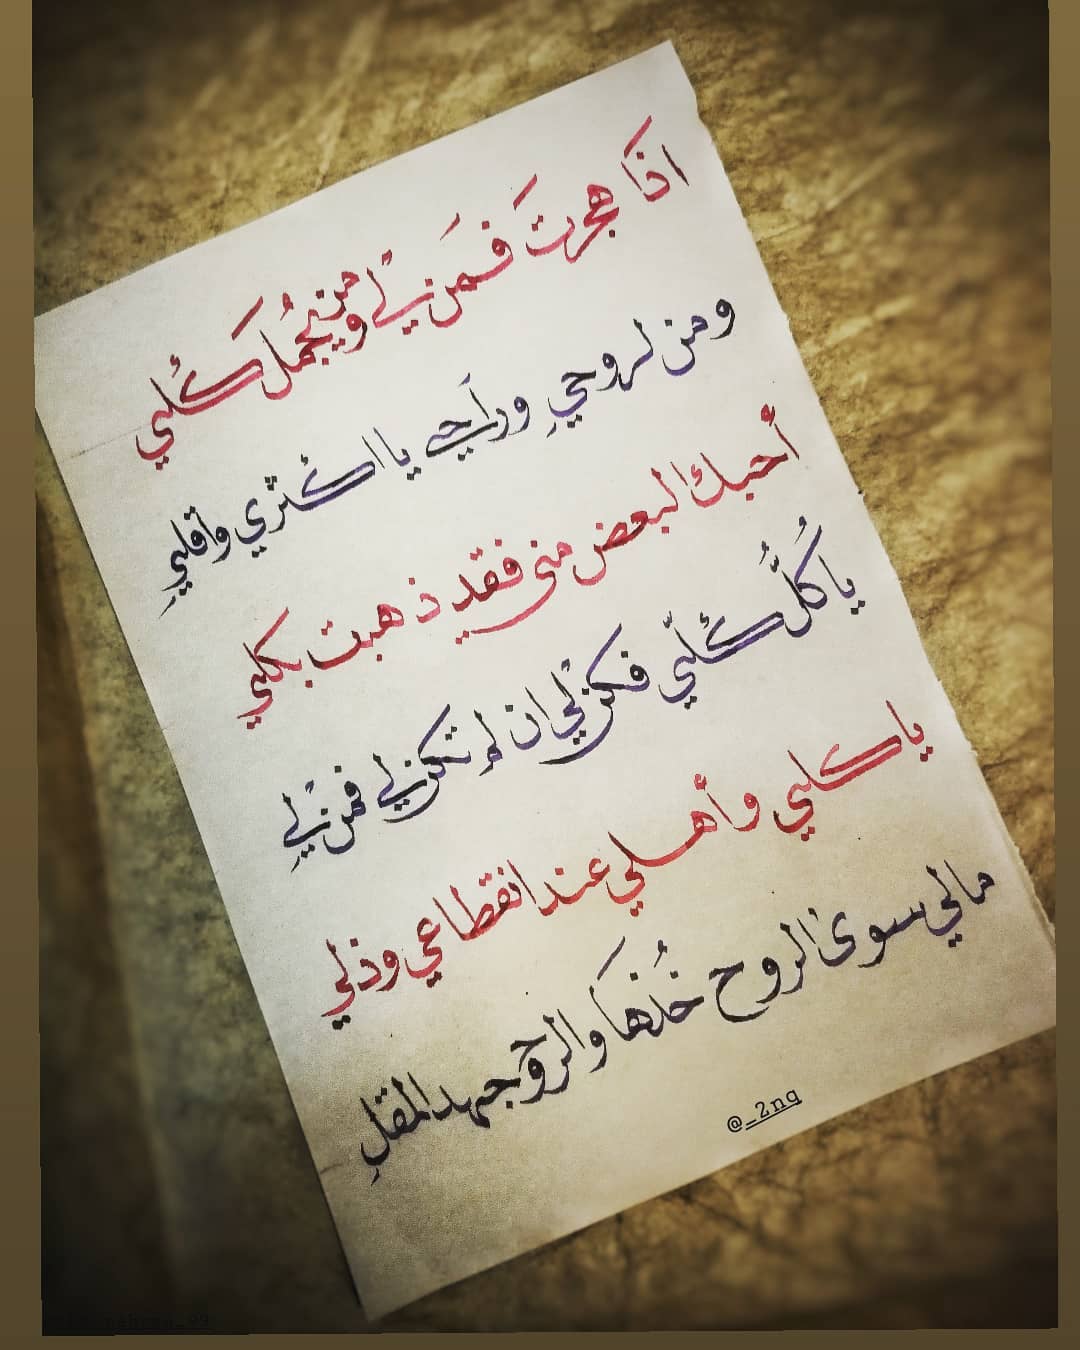 اذَا هجرتَ فَمَن لِيْ ومن يجمُل كَُلي
ومن لروحي وراَحي يا اكُثري واقلي
أحبك البعض مني فقد ذهبت بكلي
يا كُلَُ كُلّي فكن ليْ ان لم تكن لي فمن ليْ
يا كلي وأهلي عند انقطاعي وذلي
مالي سوى الروح خُذهَا والروح جهد المقلِ
@_2nq